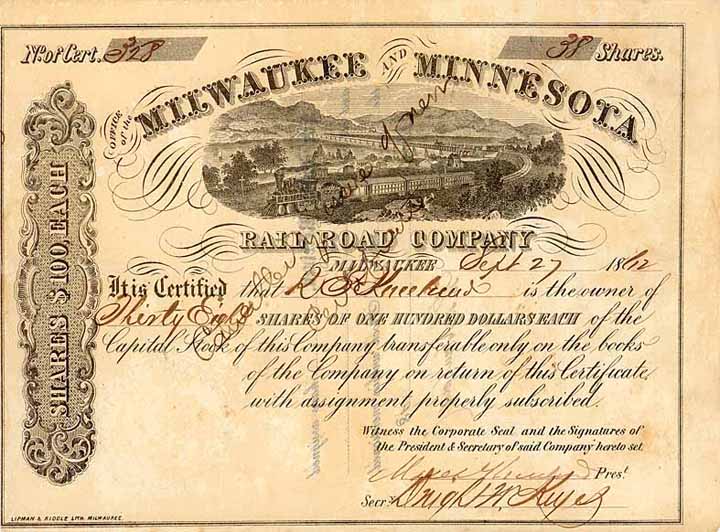 No. of Cert. 328 38 Shares.
OFFICE of the MILWAUKEE AND MINNESOTA
RAIL-ROAD COMPANY
MILWAUKEE Sept 27 1862
It is Certified that is the owner of
Thirty Eight SHARES OF ONE HUNDRED DOLLARS EACH of the
Capital Stock of this Company transferable only on the books
of the Company on return of this Certificate,
with assignment, properly subscribed.
Witness the Corporate Seal and the Signatures of
the President & Secretary of said Company hereto set.
Prest.
Secy.
SHARES $100, EACH
LIPMAN & RIDDLE LITH. MILWAUKEE.